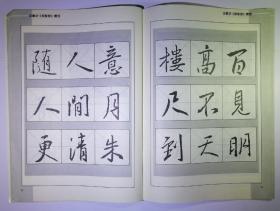 随人意
人間月
更清朱
樓高百
尺不見
到天明